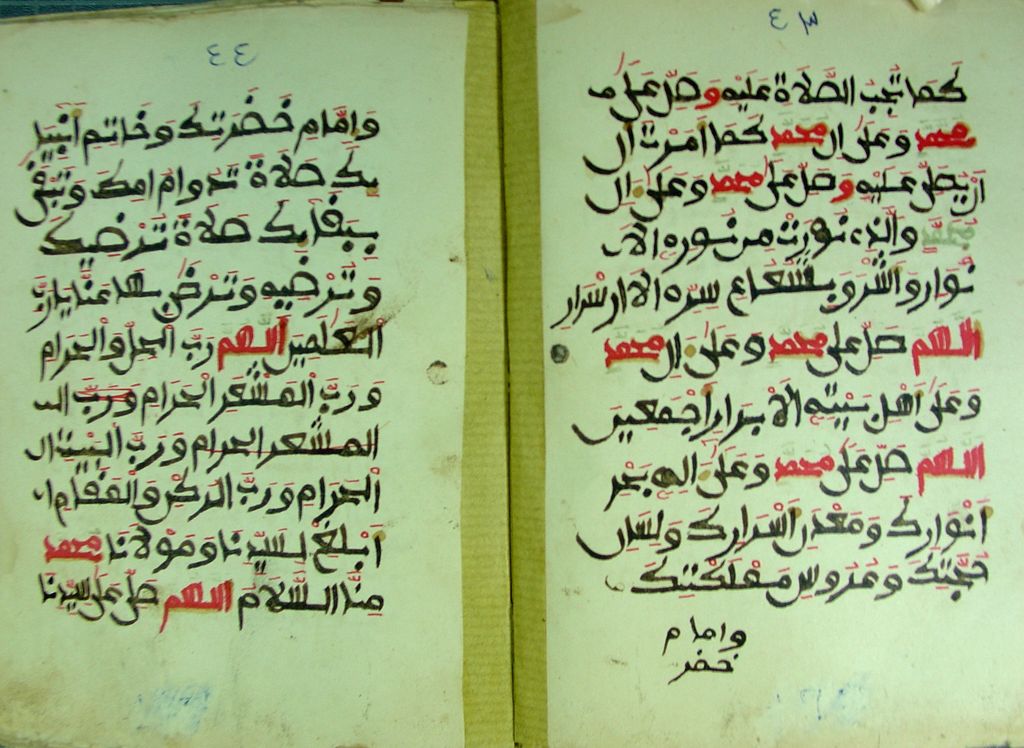 ٤٣
كَمَا تُحِبُّ الصَّلَاةُ عَلَيْهِ وَصَلِّ عَلَى مـ
محمد وَعَلَى ال محمد كَمَا اَمَرْتَ ال
اَنْ يُصَلَّ عَلَيْهِ وَصَلِّ عَلَى محمد وَعَلَى ال
محمد وَالَّذِء نَوَّرْتَ مِن نُورِهِ الَا
نْوَارِ وَاَشْرَوَ بِشُعَاعِ سِرِّهِ الَا ارْسْرَارِ
اللهم صَلِّ عَلَى محمد وَعَلَى ال محمد
وَعَلَى اَهْلِ بَيْتِهِ الَابْرَارِ اَجْمَعِينَ
اللهم صَلِّ عَلَى محمد وَعَلَى الِهِ بَحْرِ
اَنْوَارِكَ وَمَعْدَنِ اَسْرَارِكَ وَلِسَانِ
حُجَّتِكَ وَعَرُوسِ مَمْلَكَتِكَ
وامام
حضر
٤٤
وَاِمَامِ حَضْرَتِكَ وَخَاتِمِ اَنْبِيَا
يِكَ صَلَاةً تَدُوَامِ امِكَ وَتَبْقَى
بِبَقَايِكَ صَلَاةً تُرْضِيكَ
وَتُرْضِيهِ وَتَرْضَى بِهَا عَنَّا يَارَبَّ
الْعَلَمِينَ اللهم رَبَّ الْحِلِّ وَالْحَرَامِ
وَرَبَّ الْمَشْعَرِ الْحَرَامِ وَرَبَّ الـ
المشعر الحرام وَرَبَّ الْبَيْتِ ال
الْحَرَامِ وَرَبَّ الرُّكْنِ وَالْمَقَامِ ا
اَبْلِغْ لِسَيِّدِنَا وَمَوْلَانَا محمد
مِنَّا السَّلَامَ اللهم صَلِّ عَلَى سَيِّدِنَا